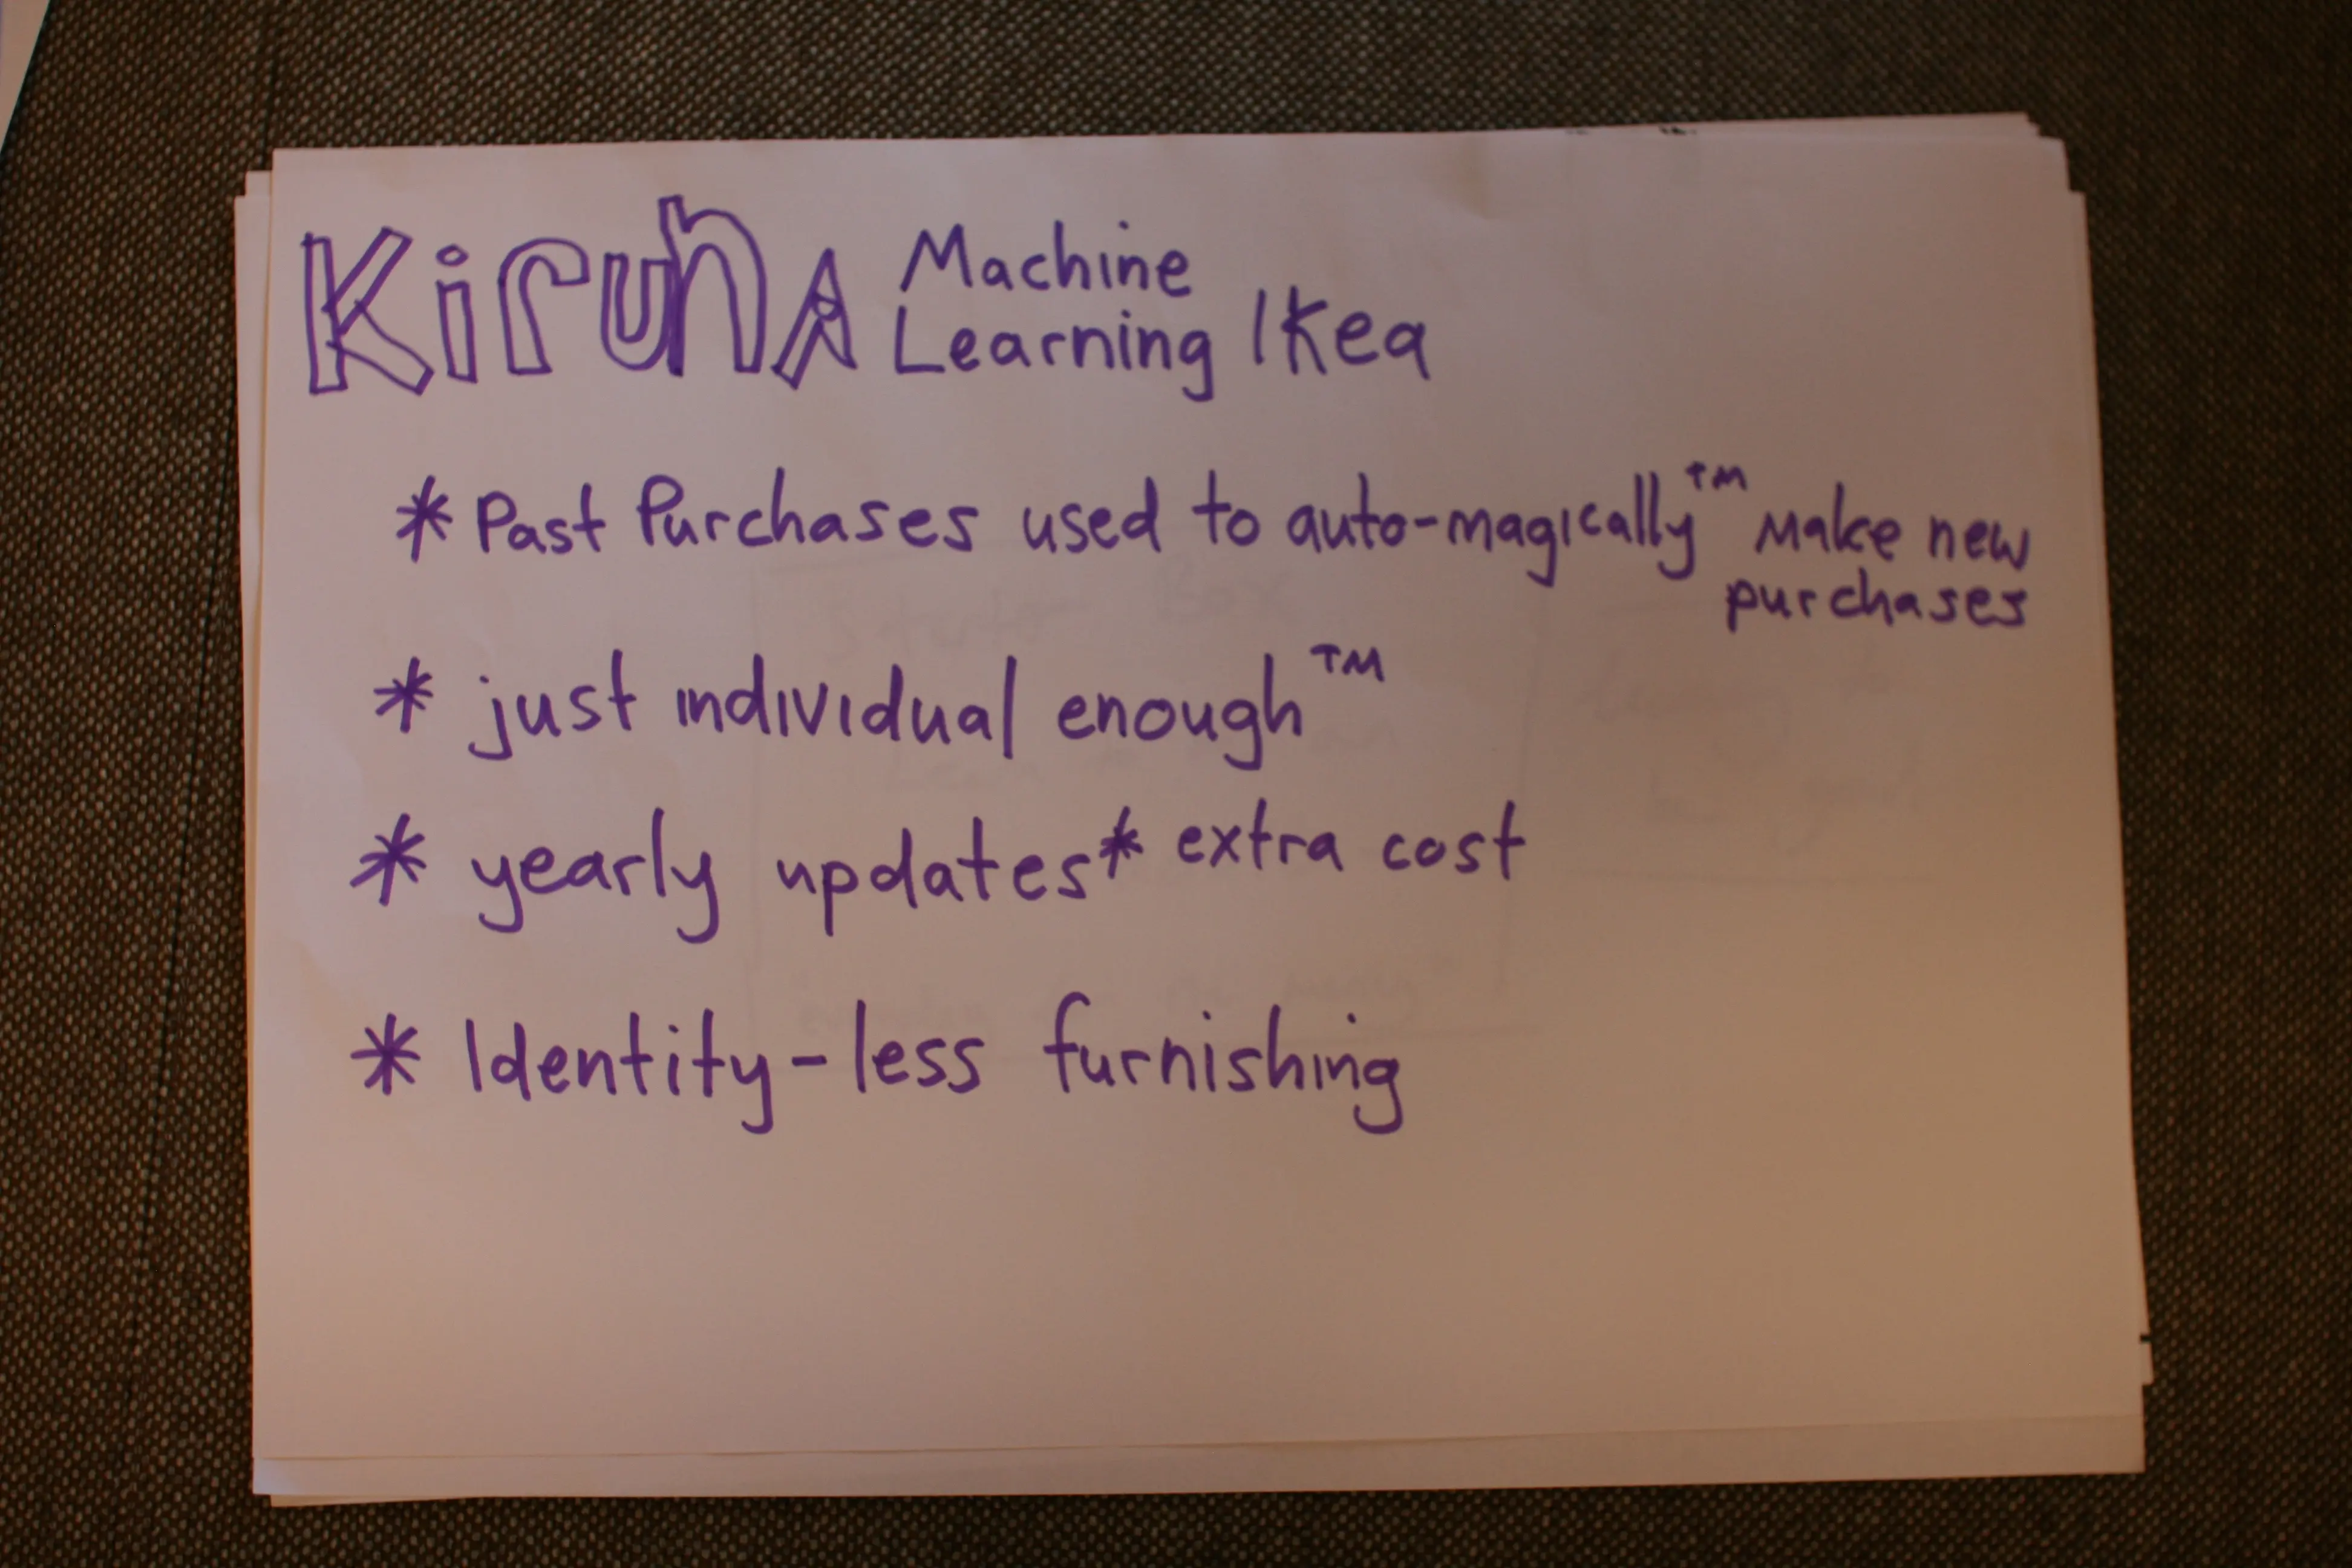 KirunA Machine
Learning Ikea
* Past Purchases used to auto-magically™ Make new
purchases
* just individual enough™
* yearly updates* extra cost
* Identity-less furnishing